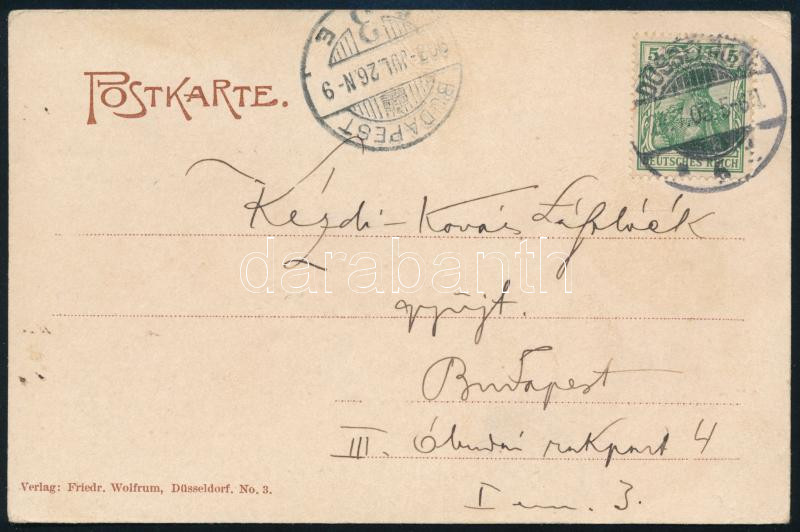 POSTKARTE.
903 JUL. 26. N 9
BUDAPEST
E
5 5
DEUTSCHES REICH
Kézdi-Kovács Lászlóék
darabanth
gyüjt.
Budapest
III. Óbudai rakpart 4
I em. 3.
Verlag: Friedr. Wolfrum, Düsseldorf. No. 3.